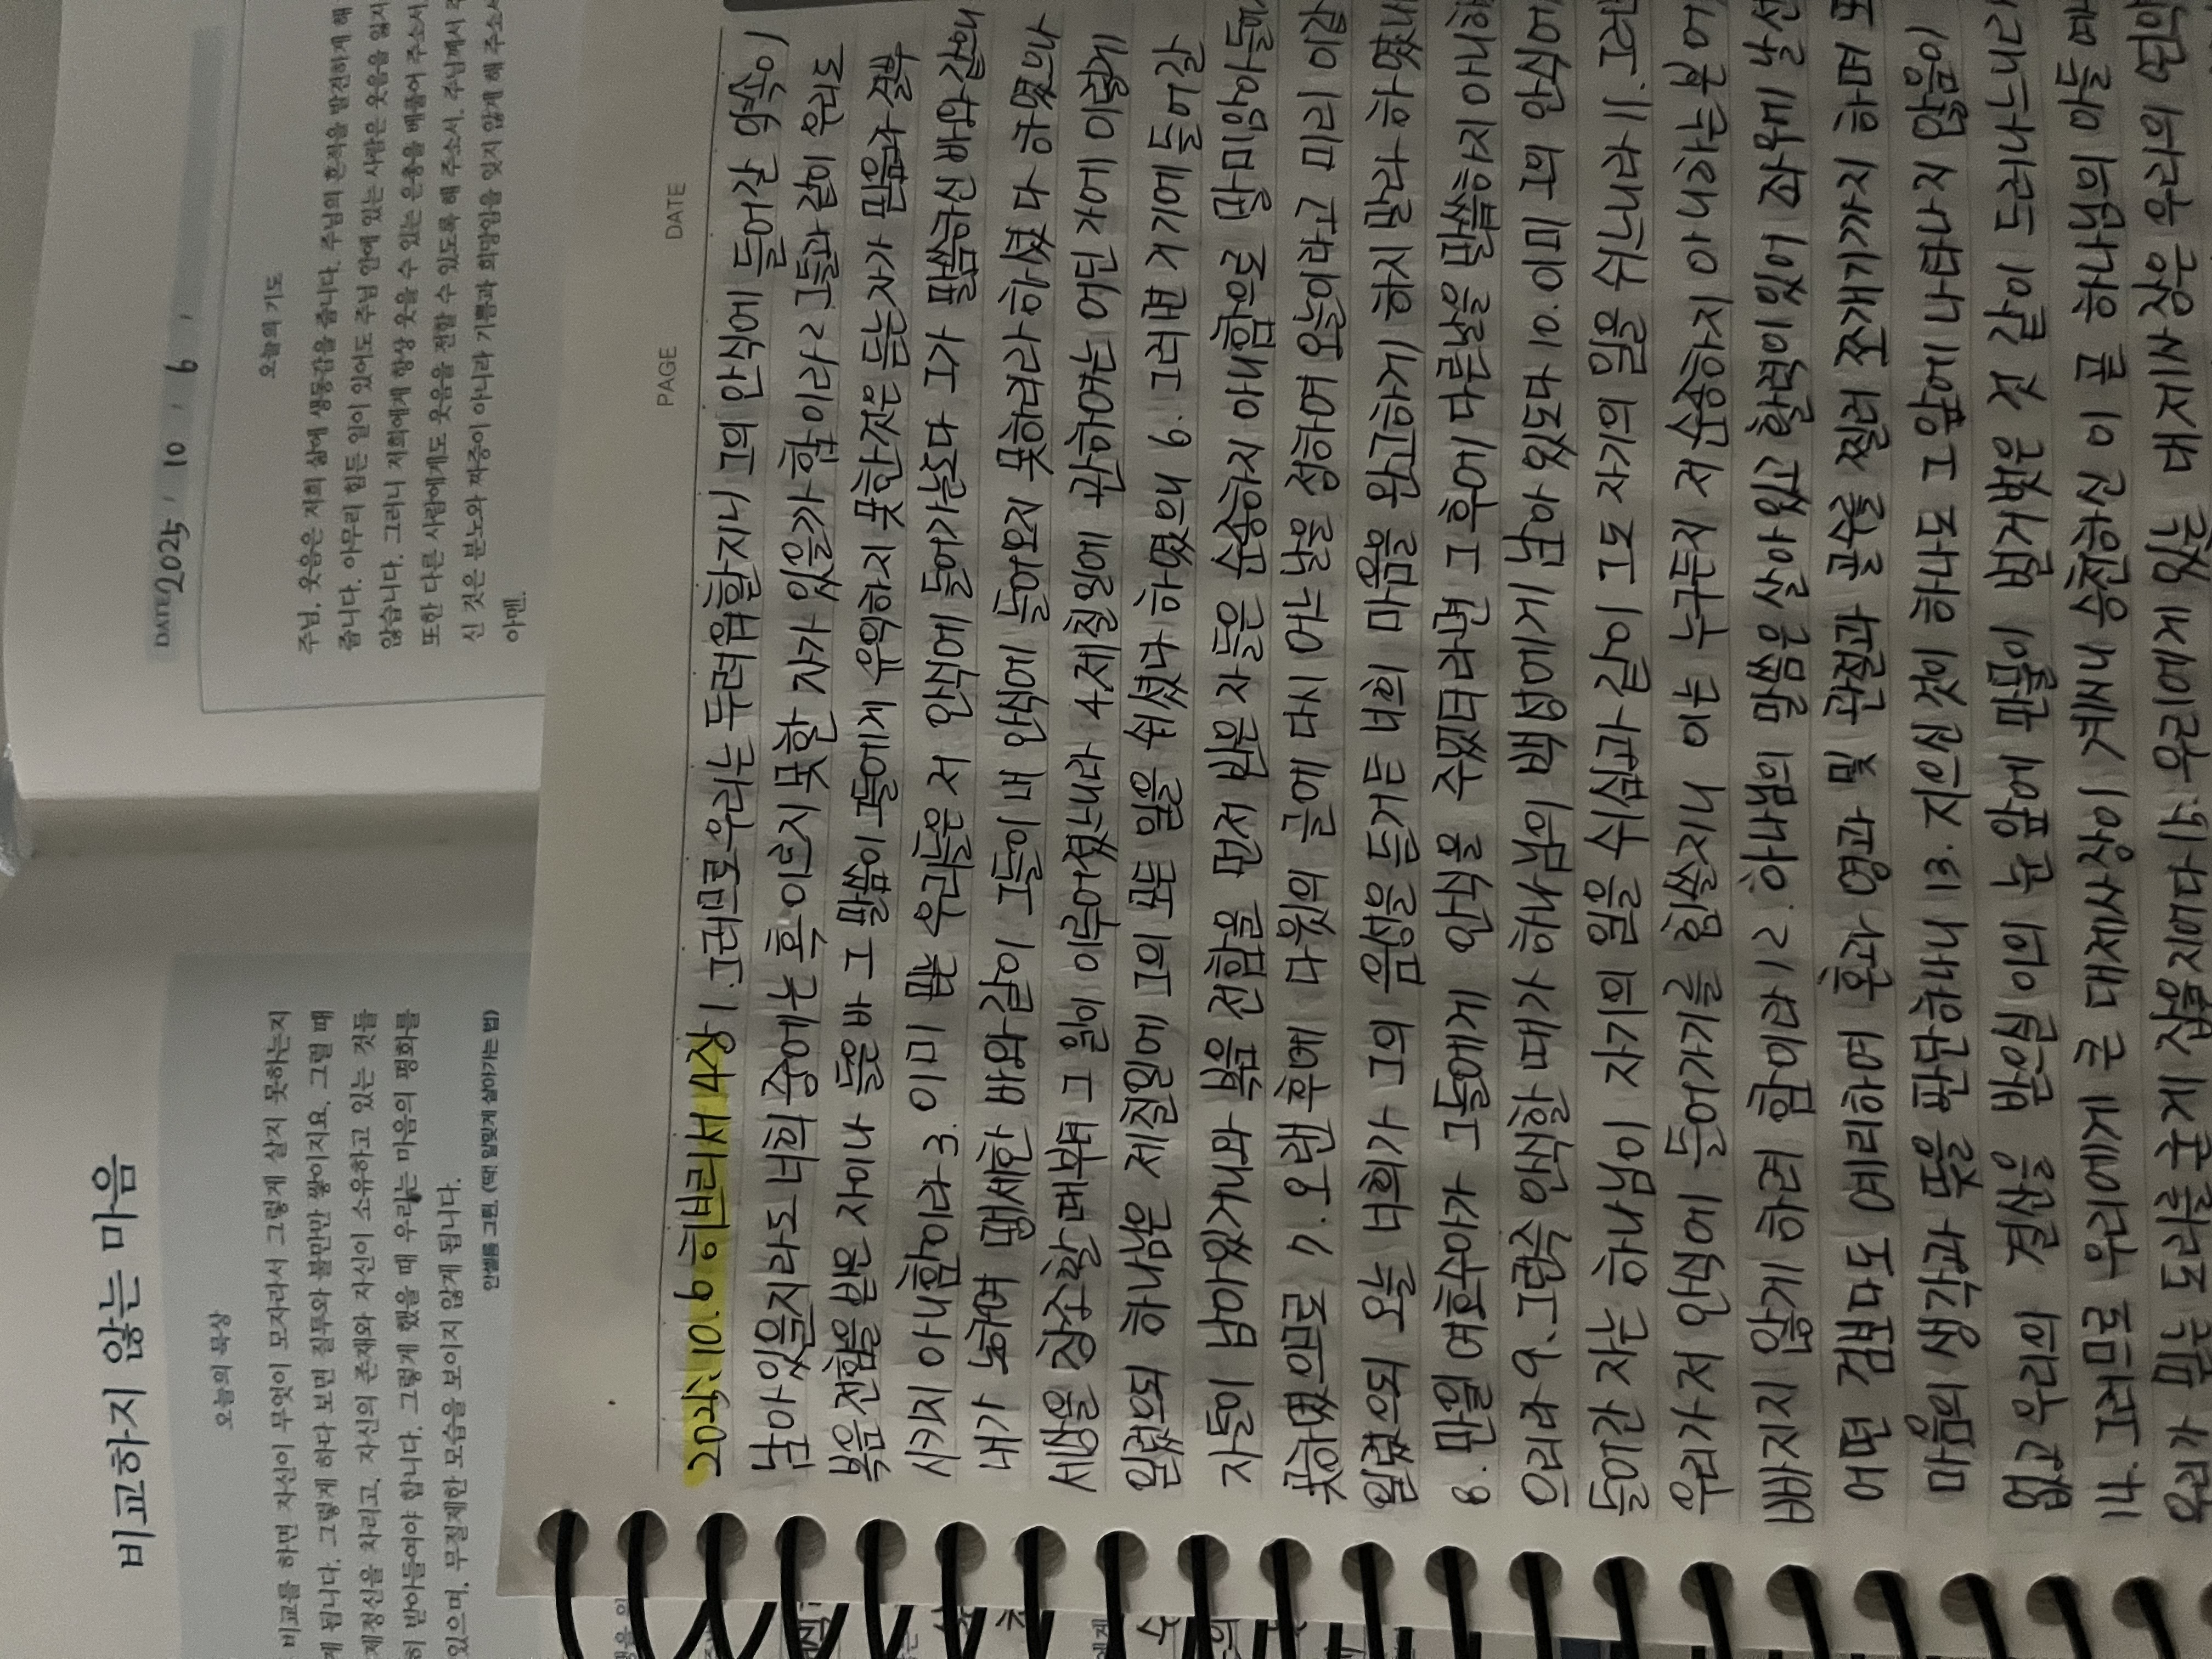 비교하지 않는 마음
오늘의 묵상
비교를 하면 자신이 무엇이 모자라서 그렇게 살지 못하는지
게 됩니다. 그렇게 하다 보면 질투와 불만만 쌓이지요. 그럴 때
제정신을 차리고, 자신의 존재와 자신이 소유하고 있는 것들
히 받아들여야 합니다. 그렇게 했을 때 우리는 마음의 평화를
있으며, 무절제한 모습을 보이지 않게 됩니다.
안셀름 그륀, (딱! 알맞게 살아가는 법)
DATE 2025 / 10 / 6 /
오늘의 기도
주님, 웃음은 저희 삶에 생동감을 줍니다. 주님의 흔적을 발견하게 해
줍니다. 아무리 힘든 일이 있어도 주님 안에 있는 사람은 웃음을 잃지
않습니다. 그러니 저희에게 항상 웃을 수 있는 은총을 베풀어 주소서.
또한 다른 사람에게도 웃음을 전할 수 있도록 해 주소서. 주님께서 주
신 것은 분노와 짜증이 아니라 기쁨과 희망임을 잊지 않게 해 주소서
아멘.
PAGE DATE
2025. 10. 6 히브리서 4장 1. 그러므로 우리는 두려워할지니 그의 안식에 들어갈 약속이
남아있을지라도 너희 중에는 혹 이르지 못할 자가 있을까 함이라 2. 그들과 같이 우리도
복음 전함을 받은 자이나 들은 바 그 말씀이 그들에게 유익하지 못한것은 듣는자가 믿음과 결부
시키지 아니함이라 3. 이미 믿는 우리들은 저 안식에 들어가는도다 그가 말씀하신 바와 같으니
내가 노하여 맹세한 바와같이 그들이 내 안식에 들어오지 못하리라 하셨다 하였으나
세상을 창조할 때부터 그 일이 이루어졌느니라 4. 제칠일에 관하여는 어딘가에 이렇게
일렀으되 하나님은 제칠일에 그의 모든 일을 쉬셨다 하였으며 6. 그러면 거기에 들어갈
자들이 남아있거니와 복음 전함을 먼저 받은 자들은 순종하지 아니함으로 말미암아 들어가
못하였으므로 7. 오랜 후에 다윗의 글에 다시 어느날을 정하여 오늘이라고 미리 이같
일렀으되 오늘 너희가 그의 음성을 듣거든 너희 마음을 완고하게 하지말라 하였나
8. 만일 여호수아가 그들에게 안식을 주었더라면 그 후에 다른날을 말씀하지 아니하
으리라 9. 그런즉 안식할 때가 하나님의 백성에게 남아 있도다 10. 이미 그의 안식에
들어간 자는 하나님이 자기의 일을 쉬심과 같이 그도 자기의 일을 쉬느니라 11. 그러
우리가 저 안식에 들어가기를 힘쓸지니 이는 누구든지 저 순종하지 아니하는 본 에
빠지지 않게 하려 함이라 12. 하나님의 말씀은 살아있고 활력이 있어 좌우에 날선
어떤 검보다도 예리하여 혼과 영과 및 관절과 골수를 찔러 쪼개기까지 하며 또
마음의 생각과 뜻을 판단하나니 13. 지으신 것이 하나도 그 앞에 나타나지 않음이
없고 우리의 결산을 받으실 이의 눈 앞에 만물이 벌거벗은 것 같이 드러나느니라
14. 그러므로 우리에게 큰 대제사장이 계시니 승천하신 이 곧 하나님의 아들
우리가 믿는 도리를 굳게 잡을지어다 15. 우리에게 있는 대제사장은 우리의 연약